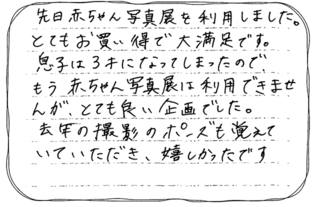 先日赤ちゃん写真展を利用しました。
とてもお買い得で大満足です。
息子は3才になってしまったので、
もう赤ちゃん写真展は利用できませ
んが、とても良い企画でした。
去年の撮影のポーズも覚えて
いていただき、嬉しかったです